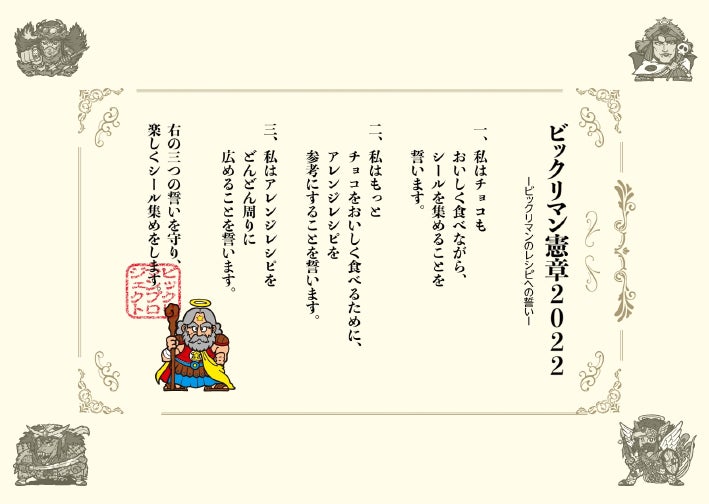 ビックリマン憲章2022
ービックリマンのレシピへの誓いー
一、私はチョコも
おいしく食べながら、
シールを集めることを
誓います。
二、私はもっと
チョコをおいしく食べるために、
アレンジレシピを
参考にすることを誓います。
三、私はアレンジレシピを
どんどん周りに
広めることを誓います。
右の三つの誓いを守り、
楽しくシール集めをします。
ビックリ
プロ
ジェクト